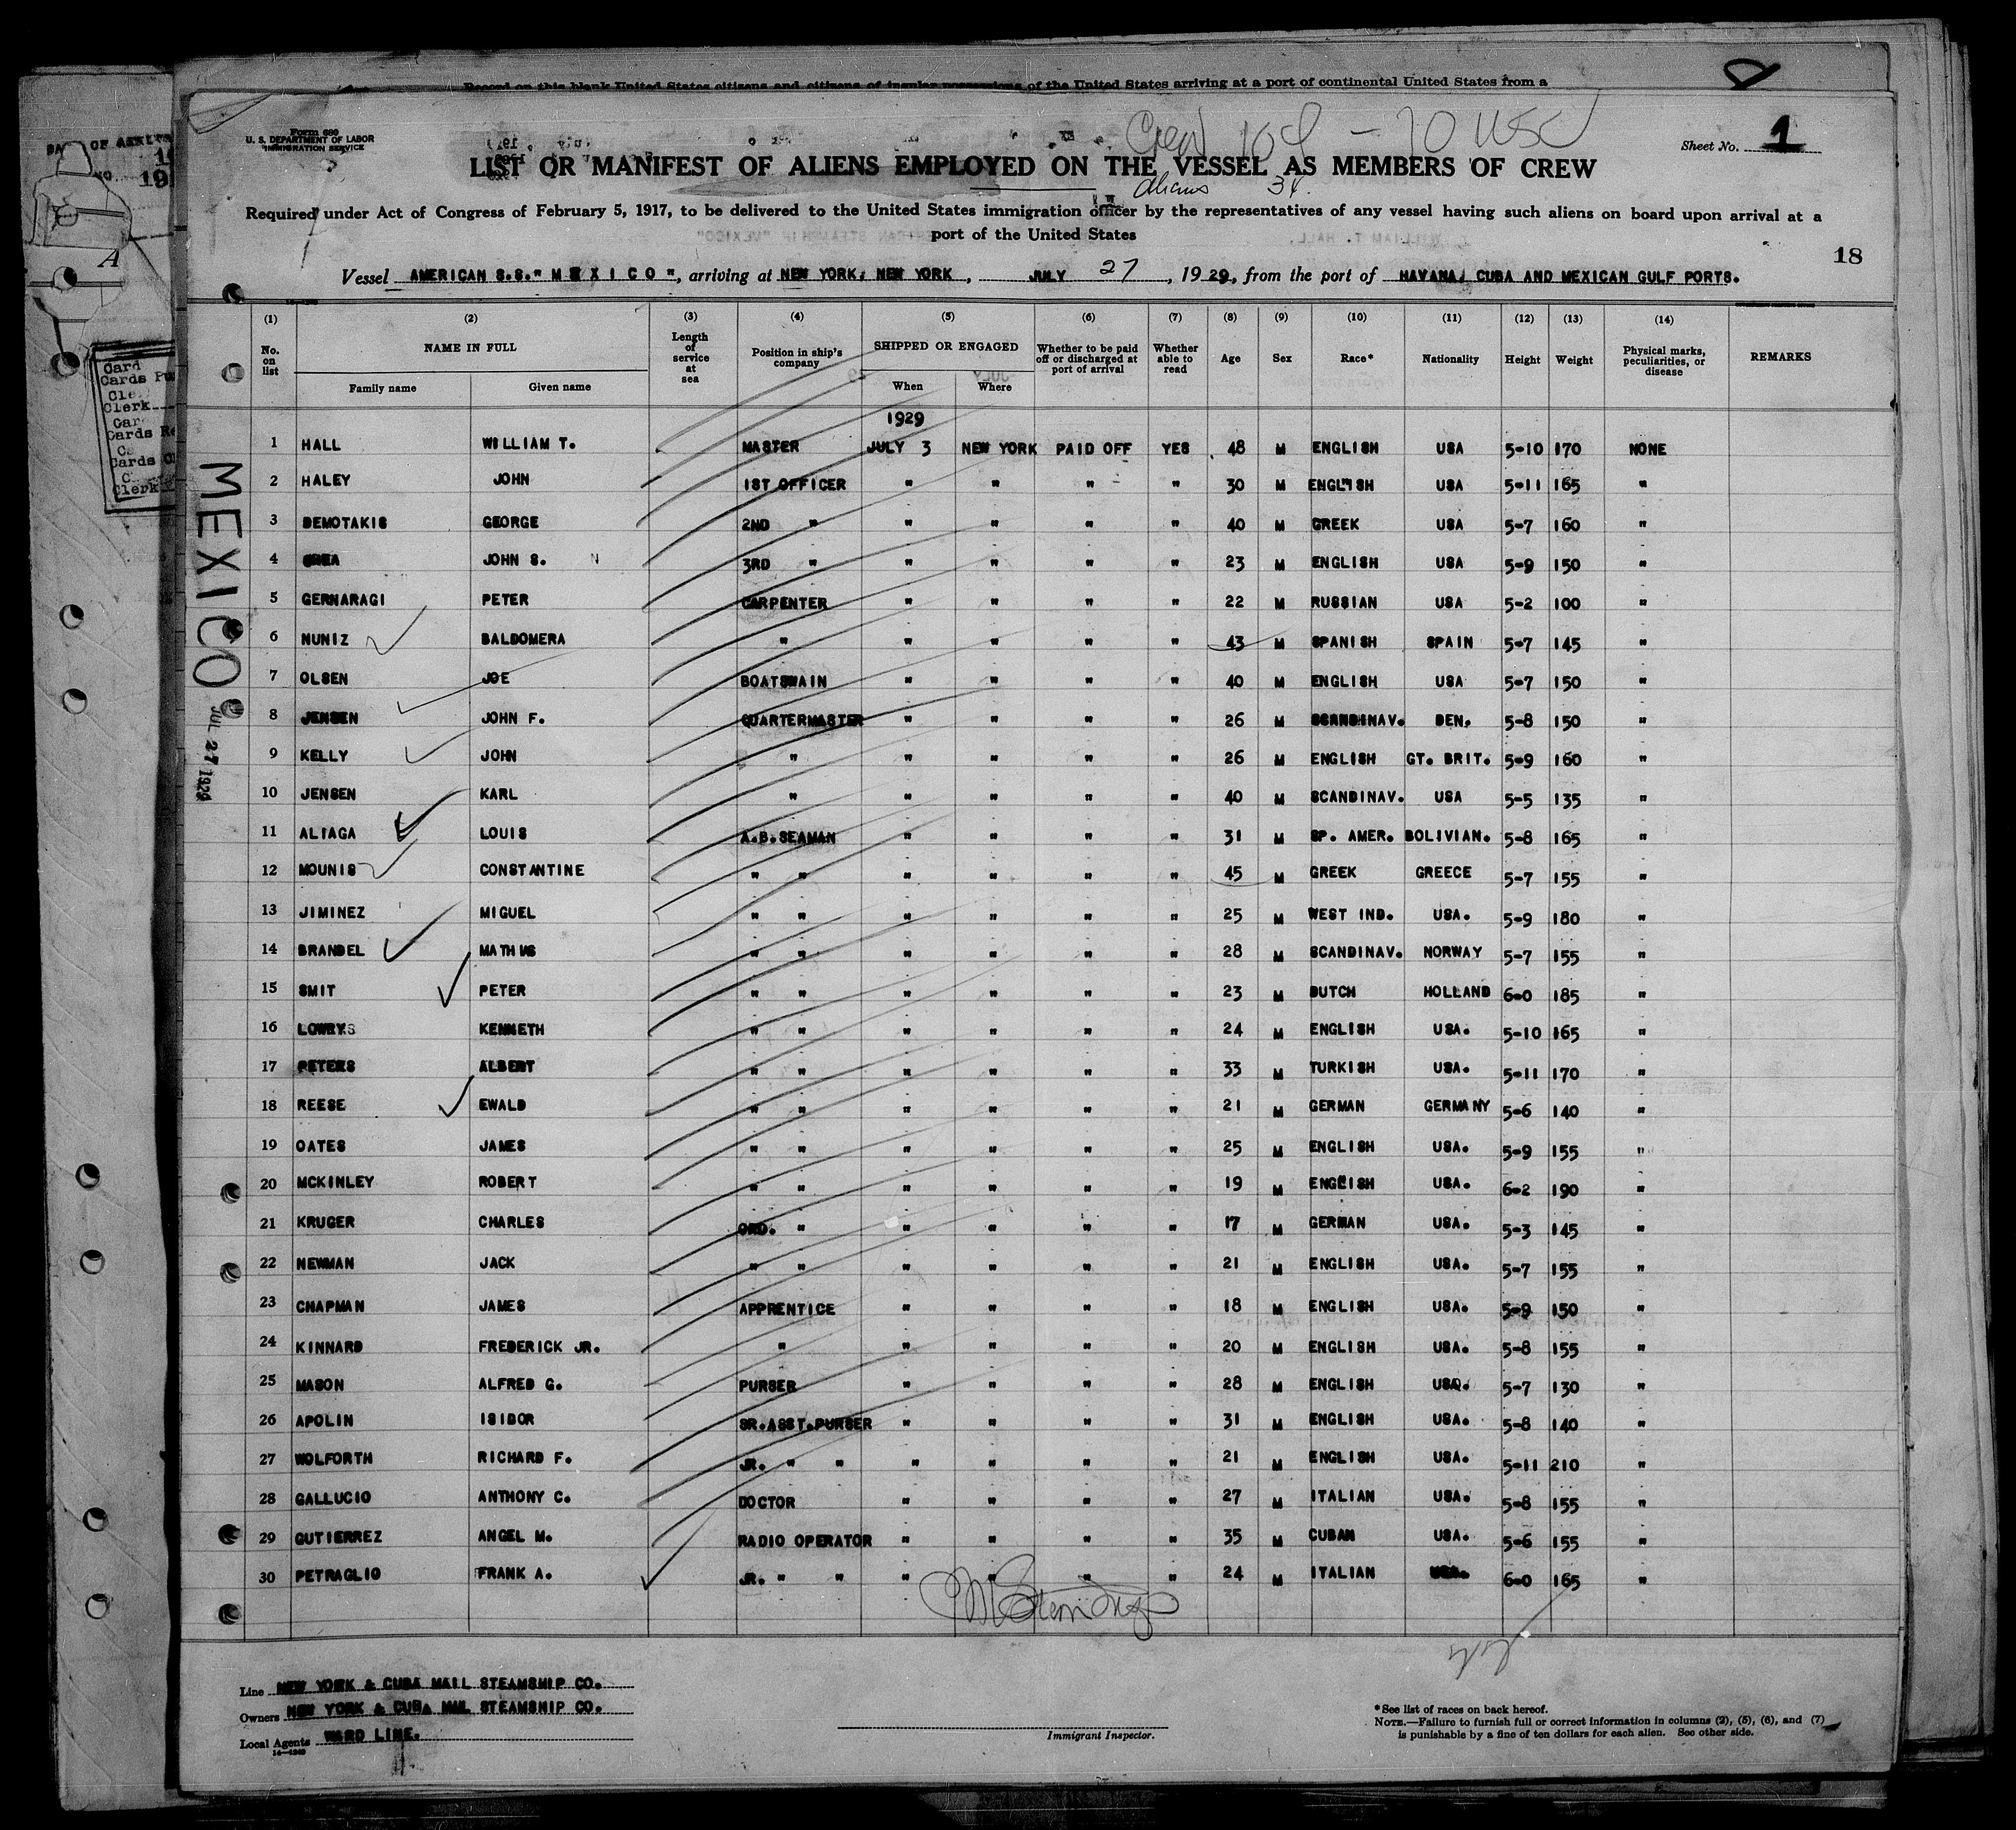 Record on this blank United States citizens and citizens of insular possessions of the United States arriving at a port of continental United States from a
Form 680
U. S. DEPARTMENT OF LABOR
IMMIGRATION SERVICE
Crew 104 - 70 USC
Sheet No. 1
LIST OR MANIFEST OF ALIENS EMPLOYED ON THE VESSEL AS MEMBERS OF CREW
Aliens 34.
Required under Act of Congress of February 5, 1917, to be delivered to the United States immigration officer by the representatives of any vessel having such aliens on board upon arrival at a
port of the United States
18
Vessel AMERICAN S.S." M E X I C O ", arriving at NEW YORK, NEW YORK, JULY 27, 1929, from the port of HAVANA, CUBA AND MEXICAN GULF PORTS.
(1) (2) (3) (4) (5) (6) (7) (8) (9) (10) (11) (12) (13) (14)
No. on list NAME IN FULL Length of service at sea Position in ship's company SHIPPED OR ENGAGED Whether to be paid off or discharged at port of arrival Whether able to read Age Sex Race* Nationality Height Weight Physical marks, peculiarities, or disease REMARKS
Family name Given name When Where
1929
1 HALL WILLIAM T. MASTER JULY 3 NEW YORK PAID OFF YES 48 M ENGLISH USA 5-10 170 NONE
2 HALEY JOHN 1ST OFFICER " " " " 30 M ENGLISH USA 5-11 165 "
3 DEMOTAKIS GEORGE 2ND " " " " " 40 M GREEK USA 5-7 160 "
4 JOHN S. 3RD " " " " " 23 M ENGLISH USA 5-9 150 "
5 GERNARAGI PETER CARPENTER " " " " 22 M RUSSIAN USA 5-2 100 "
6 NUNIZ BALDOMERA " " " " " 43 M SPANISH SPAIN 5-7 145 "
7 OLSEN JOE BOATSWAIN " " " " 40 M ENGLISH USA 5-7 150 "
8 JENSEN JOHN F. QUARTERMASTER " " " " 26 M SCANDINAV. DEN, 5-8 150 "
9 KELLY JOHN " " " " " 26 M ENGLISH GT. BRIT. 5-9 160 "
10 JENSEN KARL " " " " " 40 M SCANDINAV. USA 5-5 135 "
11 ALIAGA LOUIS A.B.SEAMAN " " " " 31 M SP. AMER. BOLIVIAN. 5-8 165 "
12 MOUNIS CONSTANTINE " " " " " " 45 M GREEK GREECE 5-7 155 "
13 JIMINEZ MIGUEL " " " " " " 25 M WEST IND. USA. 5-9 180 "
14 BRANDEL MATHIAS " " " " " " 28 M SCANDINAV. NORWAY 5-7 155 "
15 SMIT PETER " " " " " " 23 M DUTCH HOLLAND 6-0 185 "
16 LOWRYS KENNETH " " " " " " 24 M ENGLISH USA. 5-10 165 "
17 PETERS ALBERT " " " " " " 33 M TURKISH USA. 5-11 170 "
18 REESE EWALD " " " " " " 21 M GERMAN GERMANY 5-6 140 "
19 OATES JAMES " " " " " " 25 M ENGLISH USA. 5-9 155 "
20 MCKINLEY ROBERT " " " " " " 19 M ENGLISH USA. 6-2 190 "
21 KRUGER CHARLES ORD. " " " " " 17 M GERMAN USA. 5-3 145 "
22 NEWMAN JACK " " " " " " 21 M ENGLISH USA. 5-7 155 "
23 CHAPMAN JAMES APPRENTICE " " " " 18 M ENGLISH USA. 5-9 150 "
24 KINNARD FREDERICK JR. " " " " " 20 M ENGLISH USA. 5-8 155 "
25 MASON ALFRED G. PURSER " " " " 28 M ENGLISH USA. 5-7 130 "
26 APOLIN ISIDOR SR.ASST.PURSER " " " " 31 M ENGLISH USA. 5-8 140 "
27 WOLFORTH RICHARD F. JR. " " " " " " 21 M ENGLISH USA. 5-11 210 "
28 GALLUCIO ANTHONY C. DOCTOR " " " " 27 M ITALIAN USA. 5-8 155 "
29 GUTIERREZ ANGEL M. RADIO OPERATOR " " " " 35 M CUBAN USA. 5-6 155 "
30 PETRAGLIO FRANK A. JR. " " " " " " 24 M ITALIAN USA. 6-0 165 "
MEXICO
JUL 27 1929
Line NEW YORK & CUBA MAIL STEAMSHIP CO.
Owners NEW YORK & CUBA MAIL STEAMSHIP CO.
Local Agents WARD LINE.
Immigrant Inspector.
*See list of races on back hereof.
NOTE.—Failure to furnish full or correct information in columns (2), (5), (6), and (7)
is punishable by a fine of ten dollars for each alien. See other side.